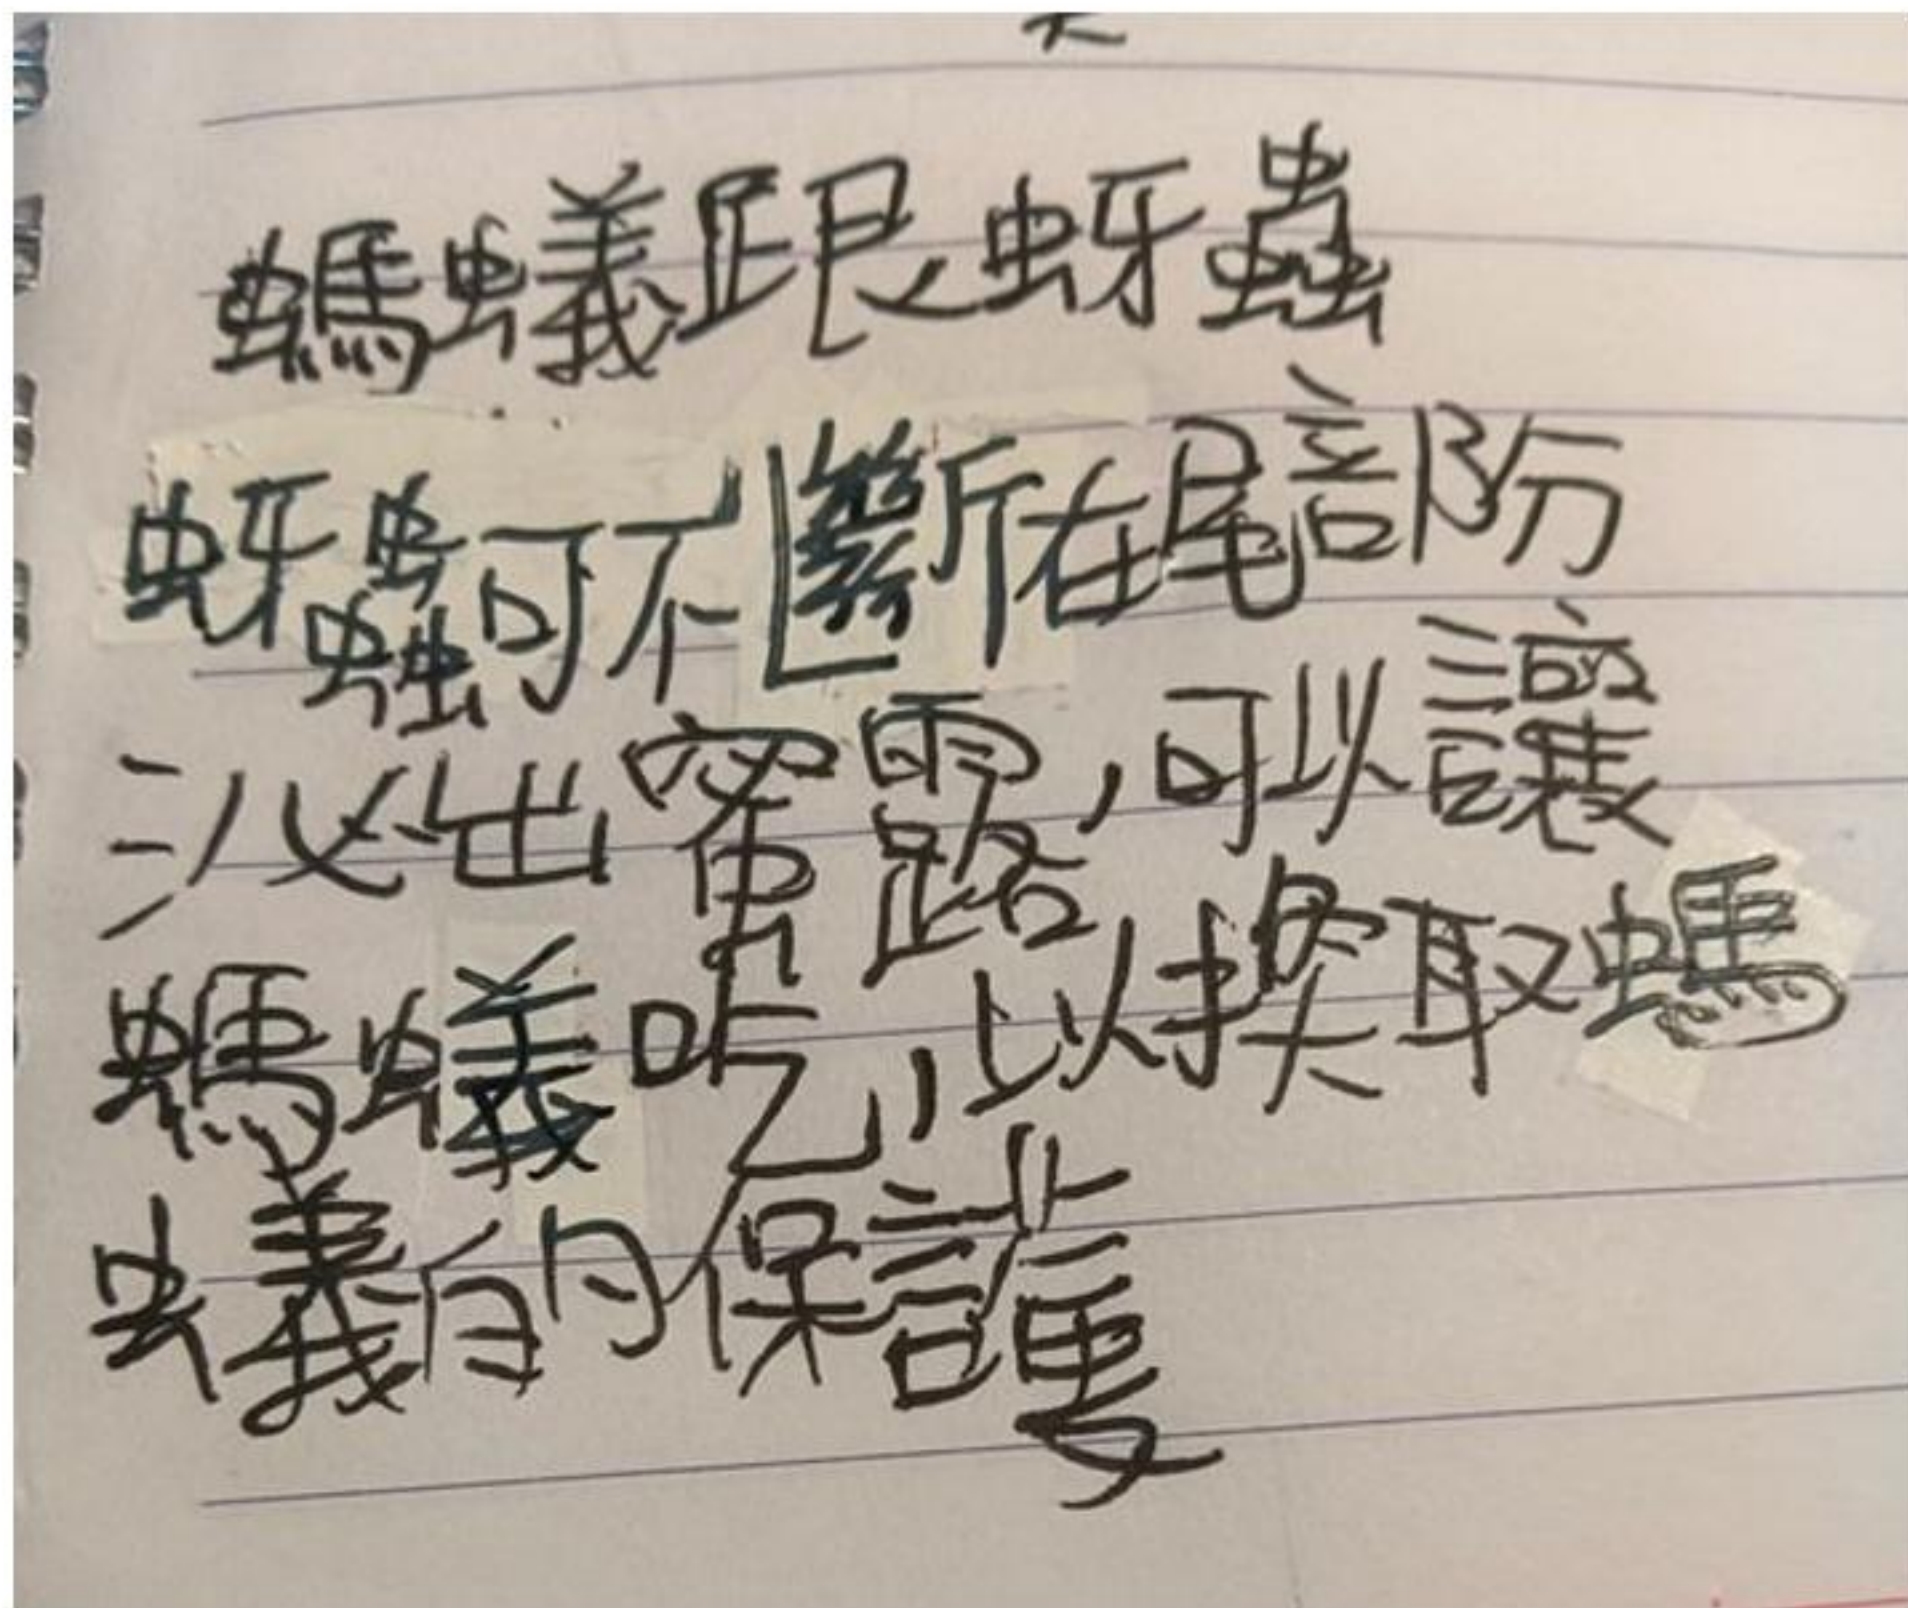 螞蟻跟蚜蟲
蚜蟲可不斷在尾部分
泌出蜜露,可以讓
螞蟻吃,以換取螞
蟻的保護